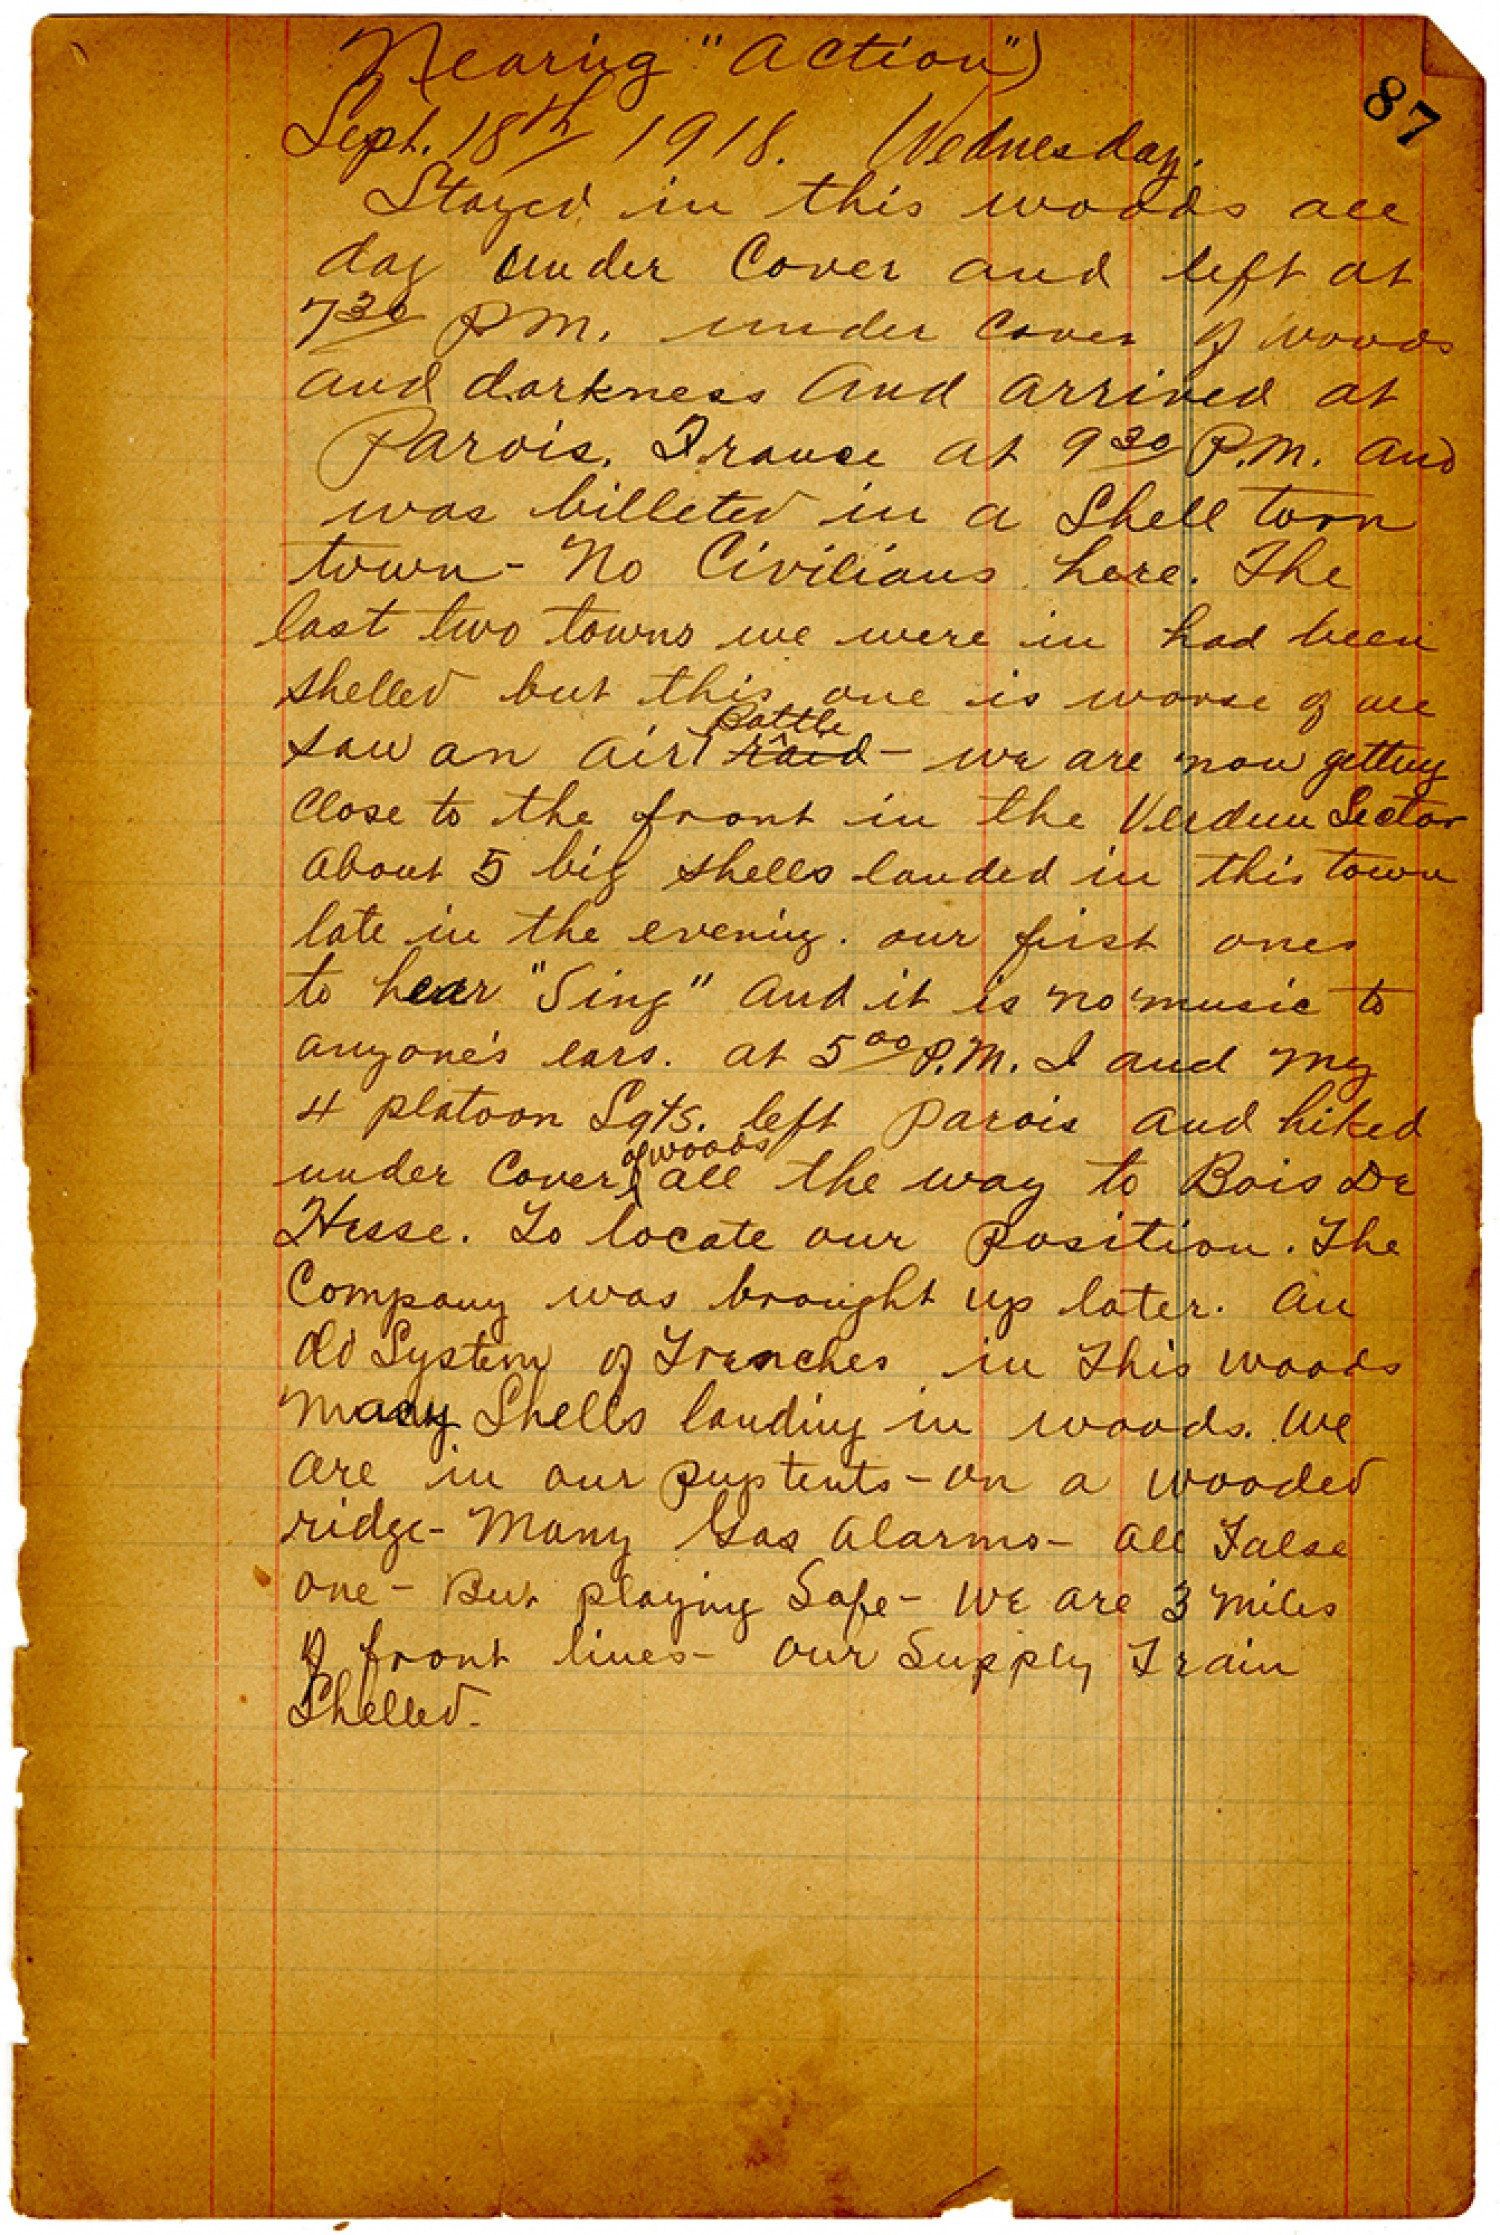 Nearing "Action")
87
Sept. 18th 1918. Wednesday.
Stayed in this woods all
day under Cover and left at
7 30 P.M. under Cover of woods
and darkness And arrived at
Parois, France at 9 30 P.M. and
was billeted in a Shell torn
town - No Civilians here. The
last two towns we were in had been
shelled but this one is worse of all
saw an air Battle raid - we are now getting
Close to the front in the Verdun Sector
About 5 big shells landed in this town
late in the evening. our first ones
to hear "Sing" And it is no music to
anyone's ears. at 5 00 P.M. I and my
4 platoon Sgts. left Parois and hiked
under Cover of woods all the way to Bois De
Hesse. To locate our position. The
Company was brought up later. An
Old System of Trenches in This woods
Many Shells landing in woods. We
are in our pup tents - on a wooded
ridge - Many Gas Alarms - All False
one - But playing Safe - We are 3 miles
of front lines - Our Supply Train
Shelled.